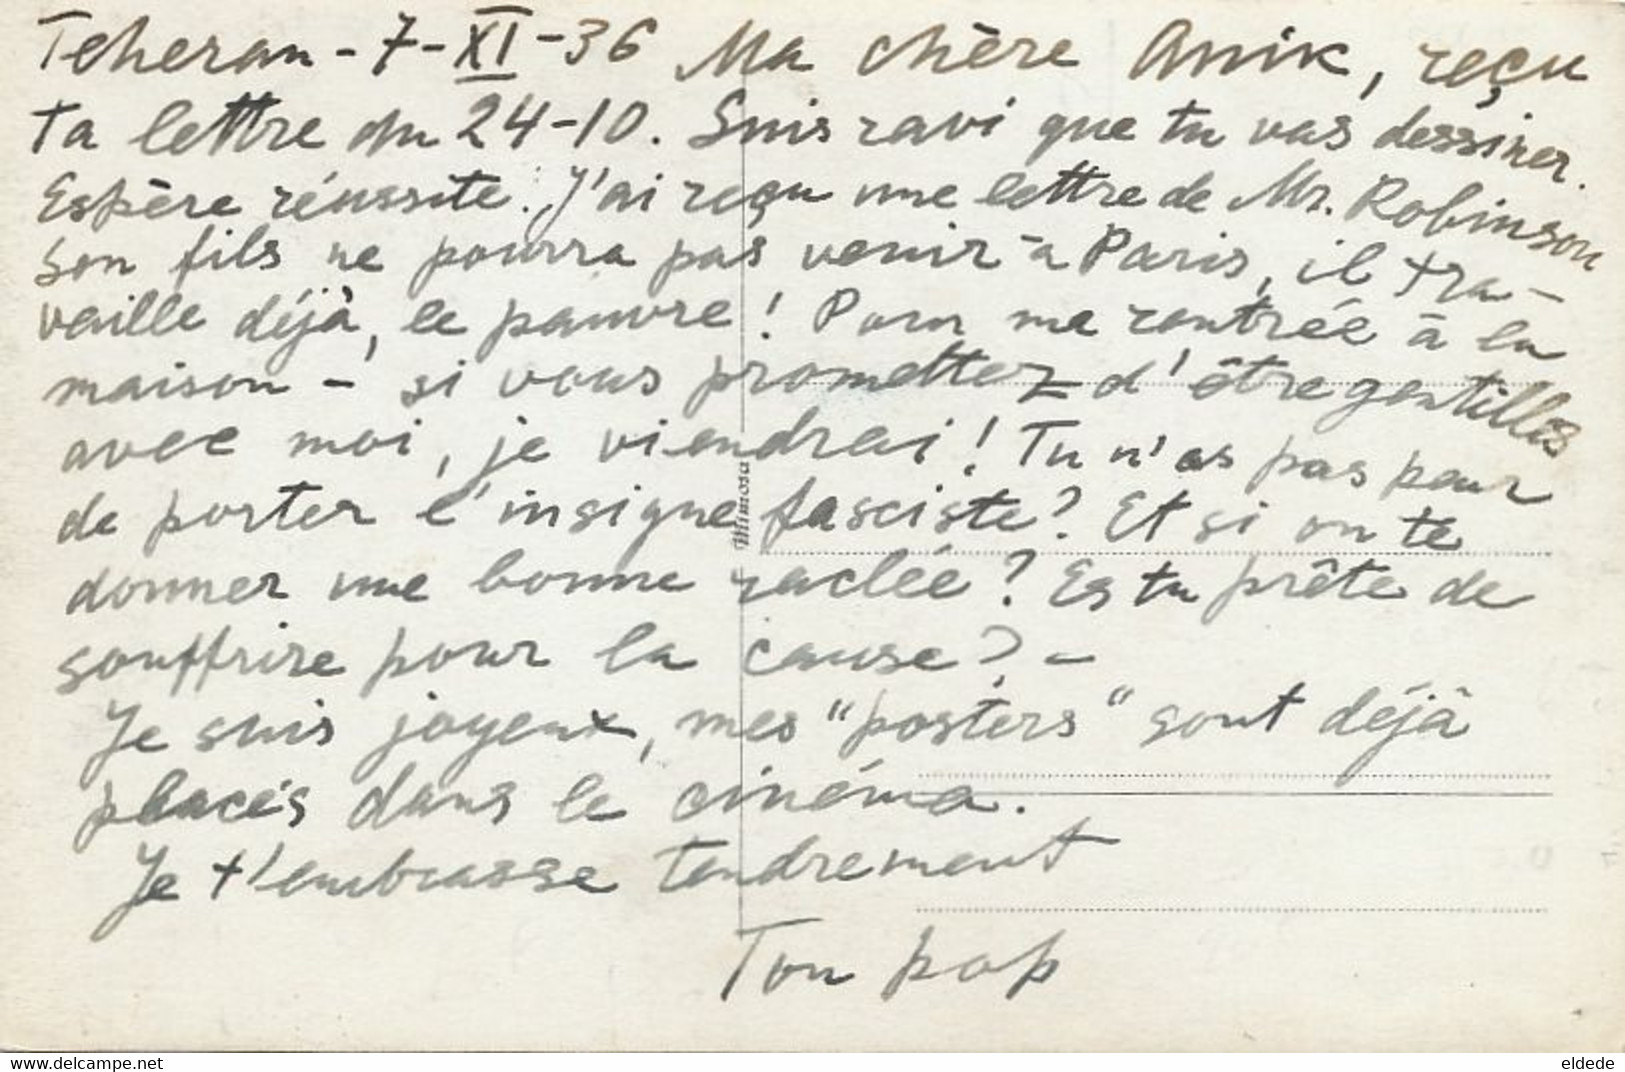 Teheran - 7 - XI - 36 Ma chère Anik, reçu
ta lettre du 24-10. Suis ravi que tu vas dessiner.
Espère réussite. J'ai reçu une lettre de Mr. Robinson
son fils ne pourra pas venir à Paris, il tra-
vaille déjà, le pauvre! Pour ma rentrée à la
maison - si vous promettez d'être gentilles
avec moi, je viendrai! Tu n'as pas peur
de porter l'insigne fasciste? Et si on te
donner une bonne raclée? Es tu prête de
souffrire pour la cause? -
Je suis joyeux, mes "posters" sont déjà
placés dans le cinéma.
Je t'embrasse tendrement
Ton pap
Mimosa
www.delcampe.net
eldede